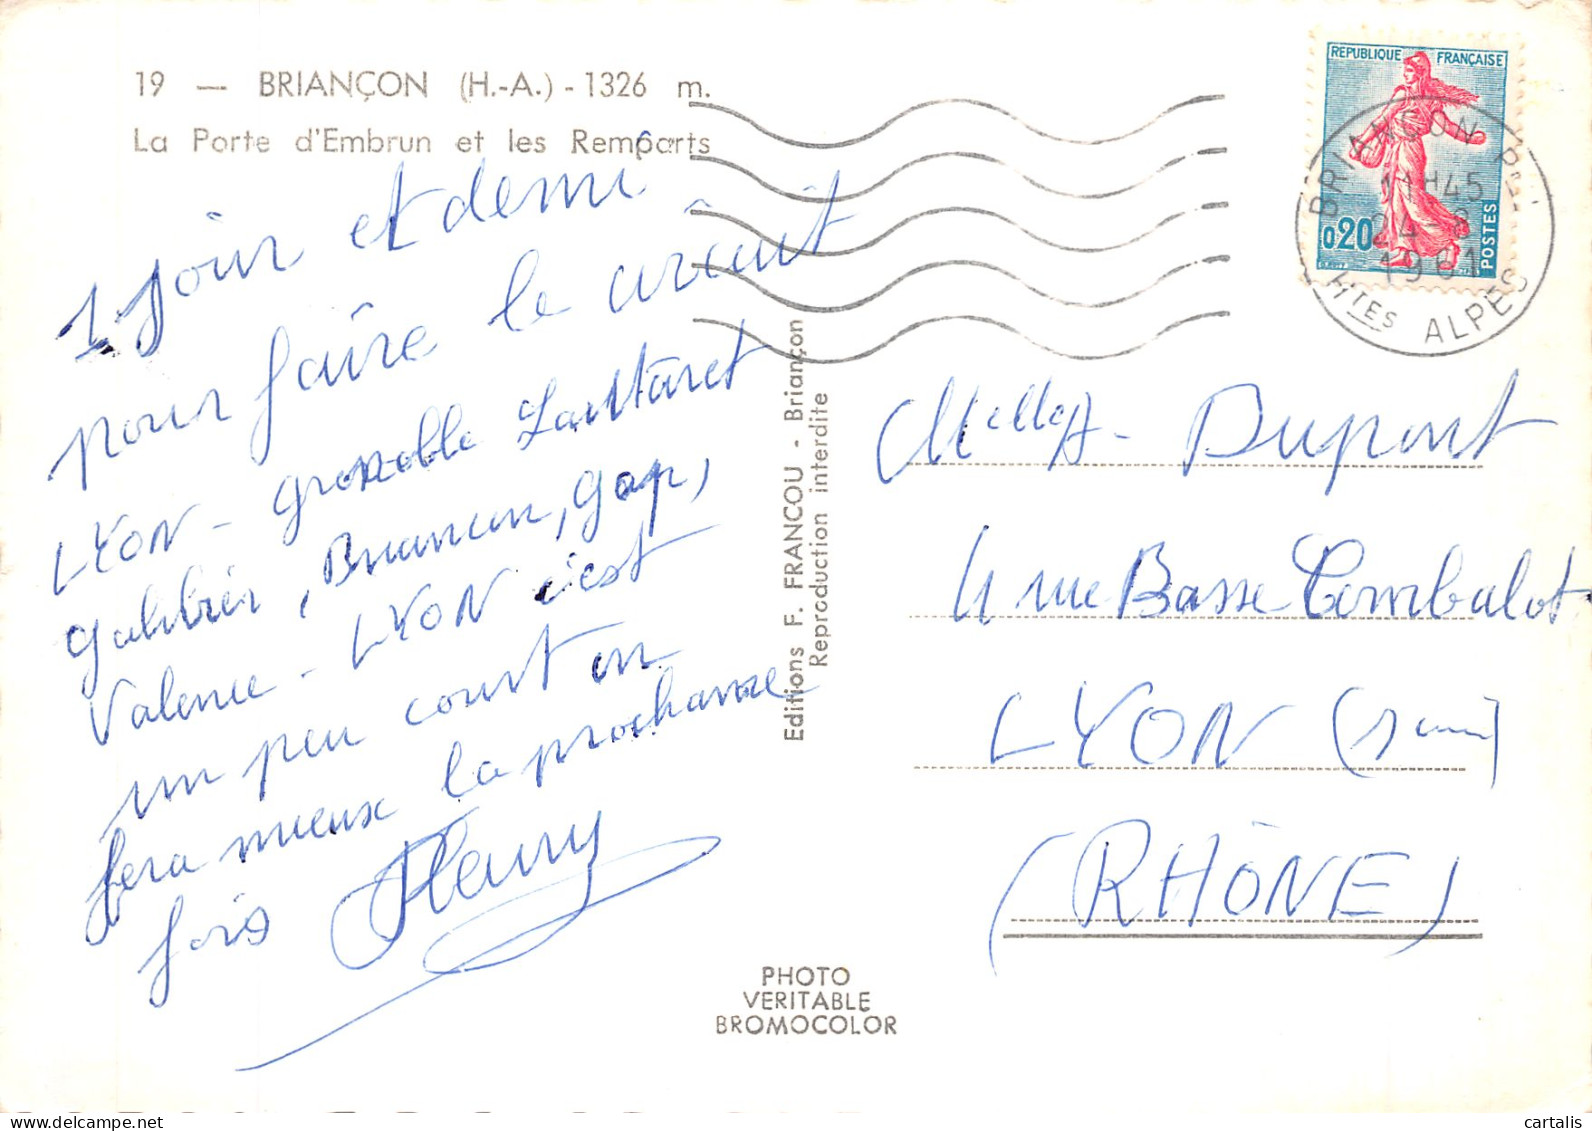 19 — BRIANÇON (H.-A.) - 1326 m.
La Porte d'Embrun et les Remparts
1 jour et demi
pour faire le circuit
LYON - Grenoble Lautaret
Galibier, Briancon, Gap,
Valence - LYON c'est
un peu court on
fera mieux la prochaine
fois Fleury
Editions F. FRANCOU - Briançon
Reproduction interdite
PHOTO
VERITABLE
BROMOCOLOR
REPUBLIQUE FRANÇAISE
0,20
POSTES
BRIANCON
H45
24 - 8
1961
HTES ALPES
Melles - Dupont
4 rue Basse Combalot
LYON
(RHÔNE)
cartalis